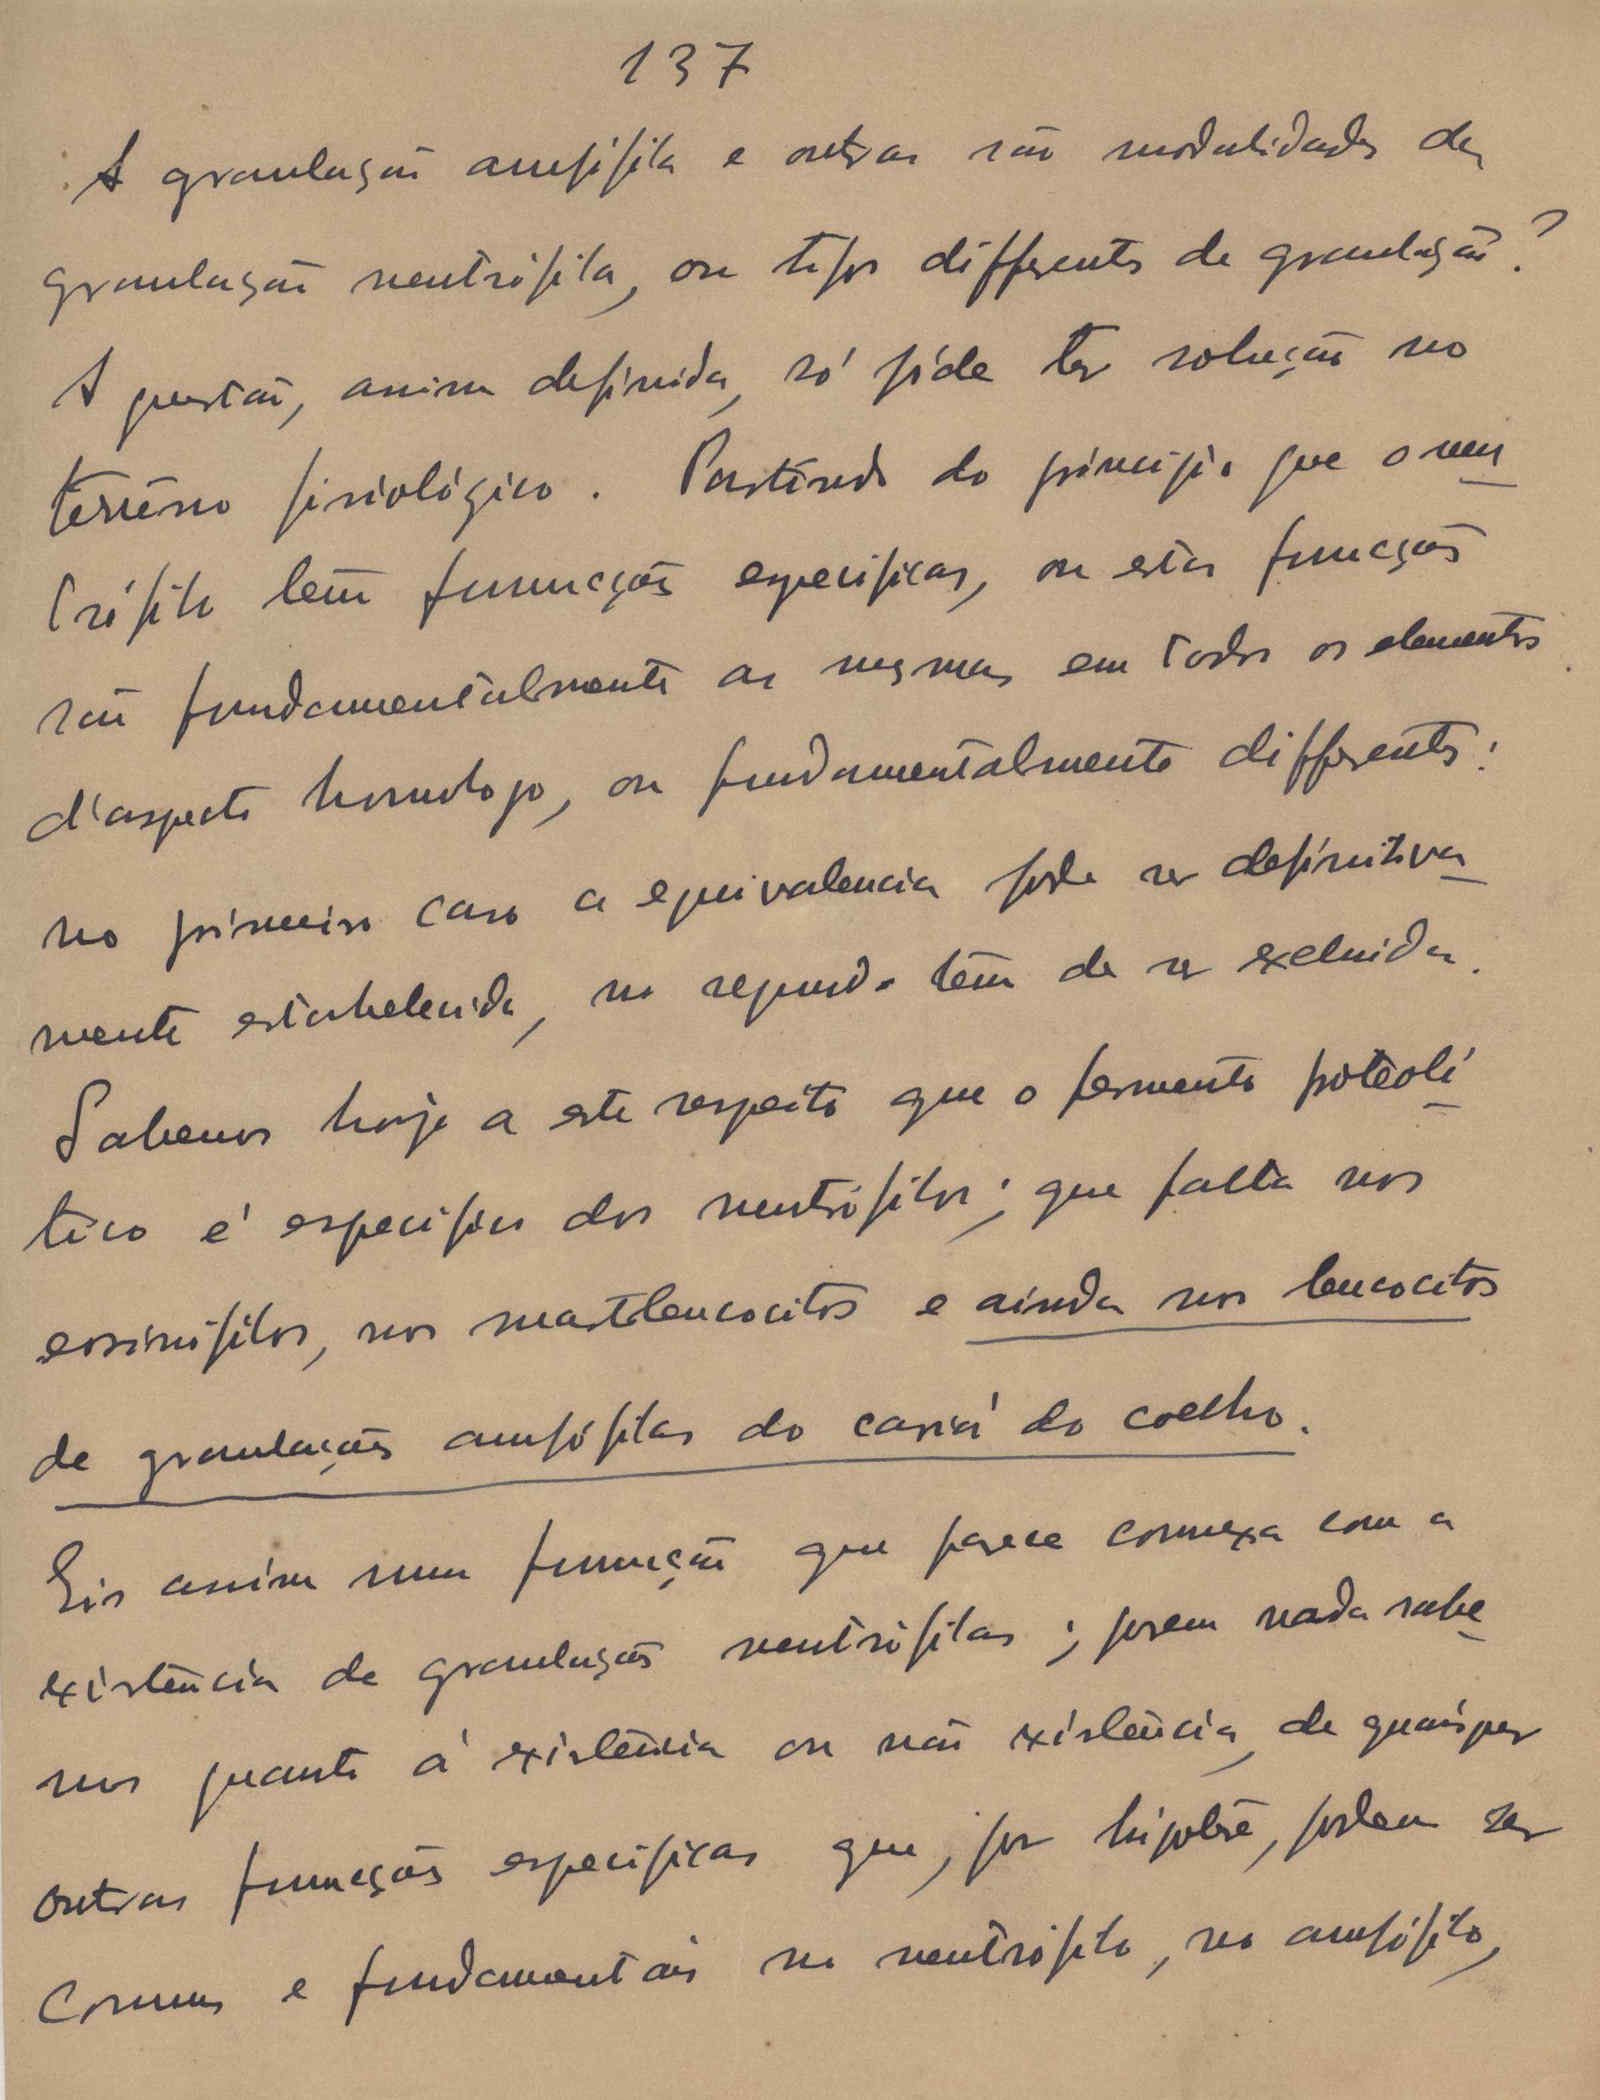 137
A granulação amfófila e outras são modalidades da
granulação neutrófila, ou tipos differentes de granulação?
A questão, assim definida, só póde ter solução no
terrêno fisiológico. Partindo do principio que o neu
trófilo têm funcções especificas, ou estas funcções
são fundamentalmente as mesmas em todos os elementos
d'aspecto homologo, ou fundamentalmente differentes:
no primeiro caso a equivalencia pode ser definitiva
mente estabelecida, no segundo têm de ser excluida.
Sabemos hoje a este respeito que o fermento proteolí
tico é especifico dos neutrófilos; que falta nos
eosinófilos, nos mastleucocitos e ainda nos leucocitos
de granulações amfófilas do cariá do coelho.
Eis assim uma funcção que parece connexa com a
existência de granulações neutrófilas; porem nada sabe
mos quanto á existência ou não existência, de quaisquer
outras funcções especificas que, por hipotese, podem ser
comuns e fundamentais no neutrófilo, no amfófilo,